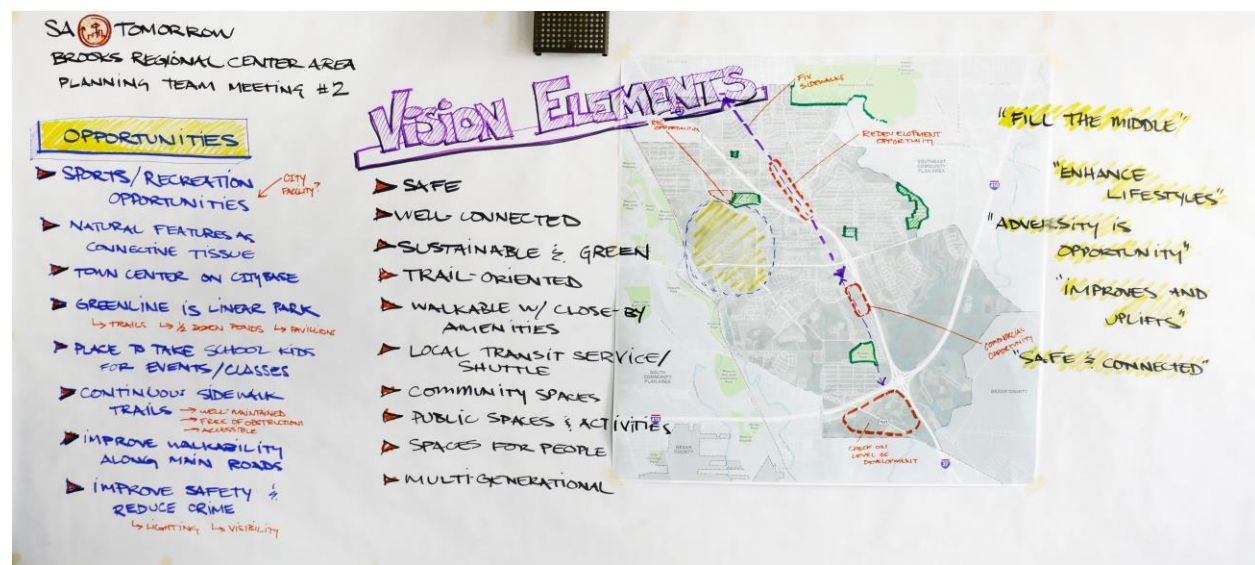 SA TOMORROW
BROOKS REGIONAL CENTER AREA
PLANNING TEAM MEETING #2
OPPORTUNITIES
SPORTS/RECREATION
OPPORTUNITIES
CITY
FACILITY?
NATURAL FEATURES AS
CONNECTIVE TISSUE
TOWN CENTER ON CITYBASE
GREENLINE IS LINEAR PARK
TRAILS ½ DOZEN PONDS PAVILLIONS
PLACE TO TAKE SCHOOL KIDS
FOR EVENTS/CLASSES
CONTINUOUS SIDEWALK
TRAILS
WELL MAINTAINED
FREE OF OBSTRUCTIONS
ACCESSIBLE
IMPROVE WALKABILITY
ALONG MAIN ROADS
IMPROVE SAFETY &
REDUCE CRIME
LIGHTING VISIBILITY
VISION ELEMENTS
SAFE
WELL CONNECTED
SUSTAINABLE & GREEN
TRAIL-ORIENTED
WALKABLE W/ CLOSE-BY
AMENITIES
LOCAL TRANSIT SERVICE/
SHUTTLE
COMMUNITY SPACES
PUBLIC SPACES & ACTIVITIES
SPACES FOR PEOPLE
MULTI-GENERATIONAL
FIX
SIDEWALKS
OPPORTUNITY
REDEVELOPMENT
OPPORTUNITY
SOUTHEAST
COMMUNITY
PLAN AREA
SOUTH
COMMUNITY
PLAN AREA
COMMERCIAL
OPPORTUNITY
BEXAR COUNTY
BEXAR
COUNTY
CHECK ON
LEVEL OF
DEVELOPMENT
37
"FILL THE MIDDLE"
"ENHANCE
LIFESTYLES"
"ADVERSITY IS
OPPORTUNITY"
"IMPROVES AND
UPLIFTS"
"SAFE & CONNECTED"